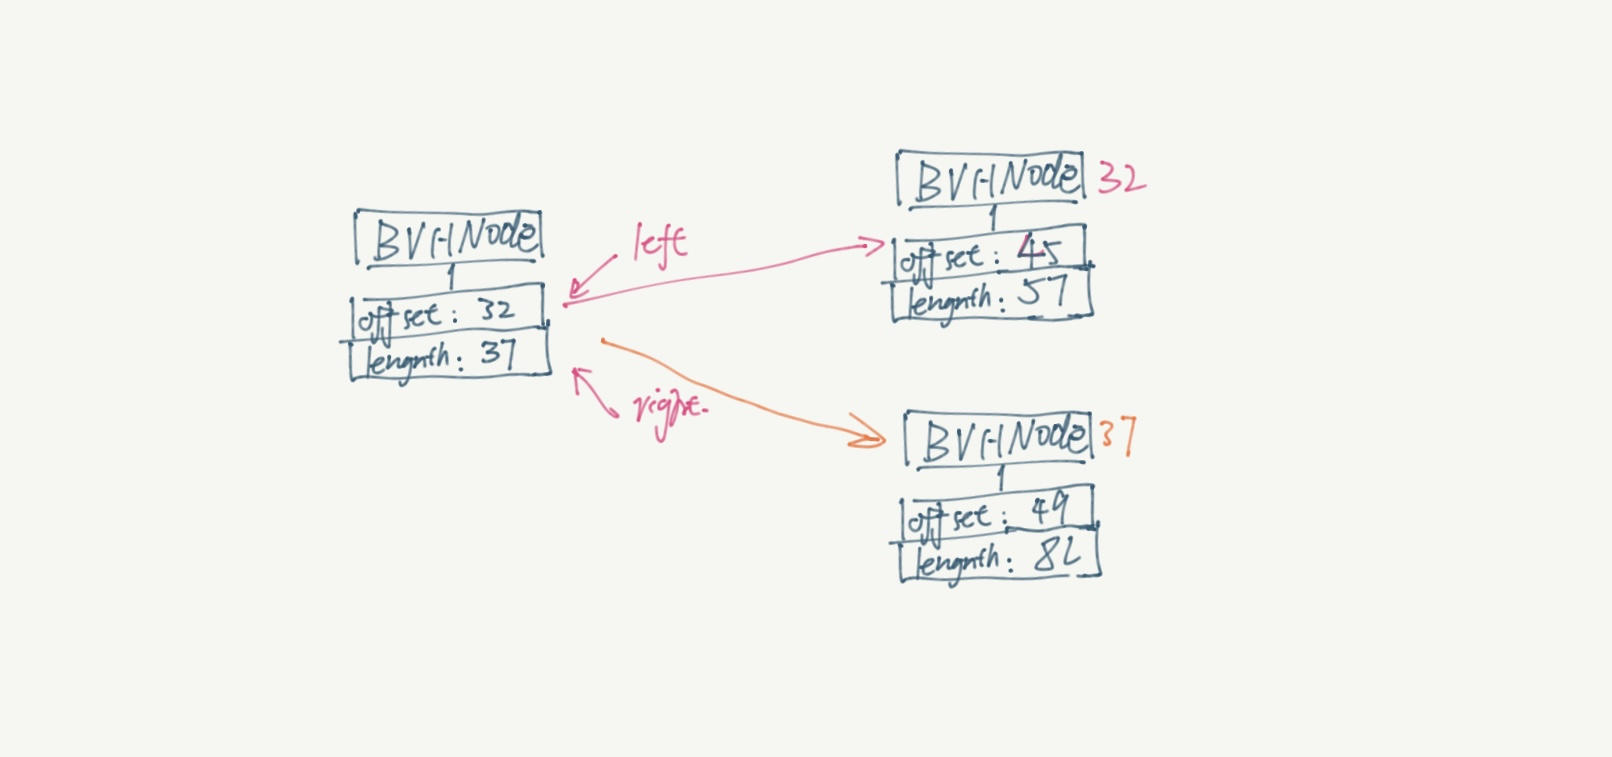 BVHNode
offset: 32
lengnth: 37
left
right.
BVHNode 32
offset: 45
lengnth: 57
BVHNode 37
offset: 49
lengnth: 82